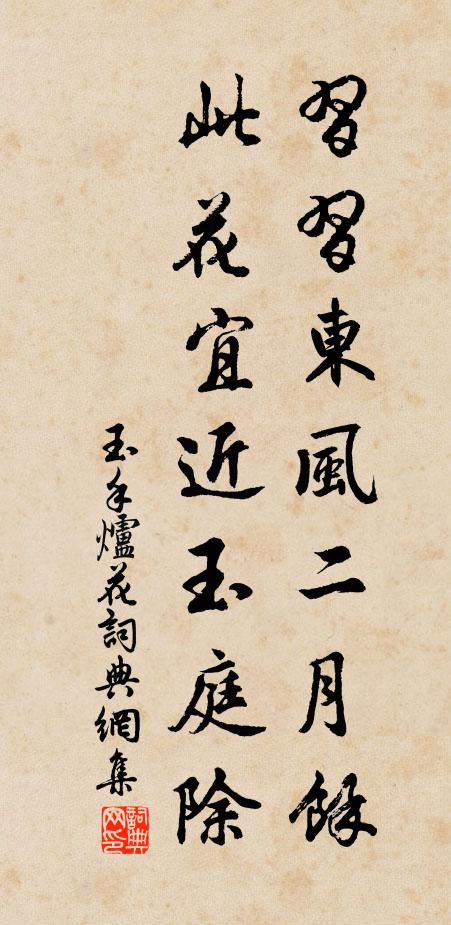 習習東風二月餘
此花宜近玉庭除
玉手爐花詞典網集
詞典网印